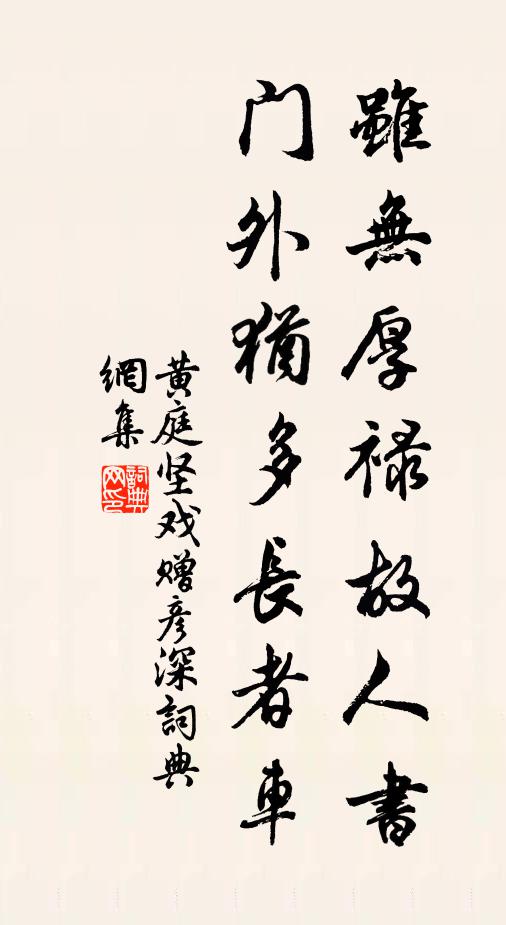 雖無厚祿故人書
門外猶多長者車
黄庭坚戏赠彦深詞典
網集
詞典
网印